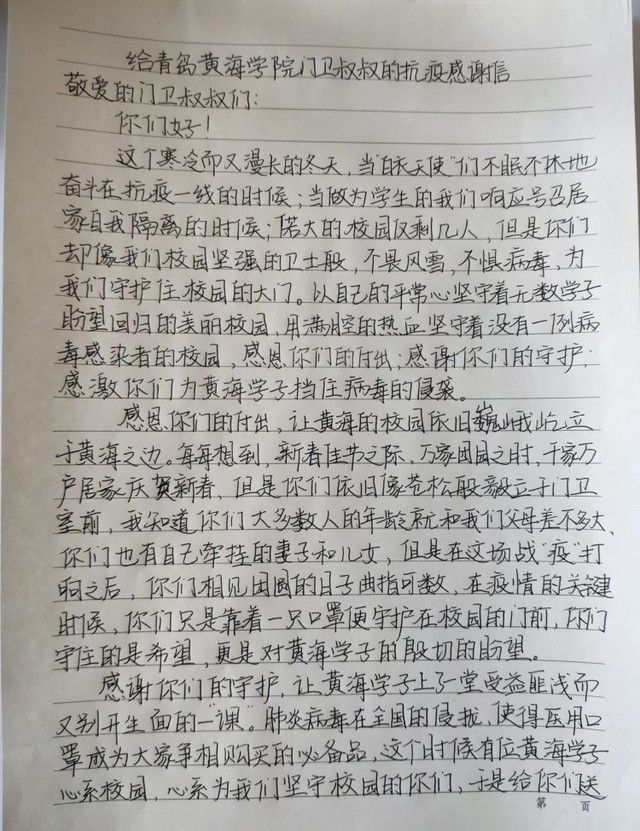 给青岛黄海学院门卫叔叔的抗疫感谢信
敬爱的门卫叔叔们:
你们好!
这个寒冷而又漫长的冬天,当"白衣天使"们不眠不休地
奋斗在抗疫一线的时候;当做为学生的我们响应号召居
家自我隔离的时候;偌大的校园仅剩几人,但是你们
却像我们校园坚强的卫士般,不畏风雪,不惧病毒,为
我们守护住校园的大门。以自己的平常心坚守着无数学子
盼望回归的美丽校园,用满腔的热血坚守着没有一例病
毒感染者的校园,感恩你们的付出;感谢你们的守护;
感激你们为黄海学子挡住病毒的侵袭。
感恩你们的付出,让黄海的校园依旧巍峨屹立
于黄海之边。每每想到,新春佳节之际,万家团圆之时,千家万
户居家庆贺新春,但是你们依旧像苍松般毅立于门卫
室前,我知道你们大多数人的年龄就和我们父母差不多大、
你们也有自己牵挂的妻子和儿女,但是在这场战"疫"打
响之后,你们相见团圆的日子曲指可数,在疫情的关键
时候,你们只是靠着一只口罩便守护在校园的门前,你们
守住的是希望,更是对黄海学子的殷切的盼望。
感谢你们的守护,让黄海学子上了一堂受益匪浅而
又别开生面的"一课"。肺炎病毒在全国的侵扰,使得医用口
罩成为大家争相购买的必备品,这个时候有位黄海学子
心系校园,心系为我们坚守校园的你们,于是给你们送
第 页